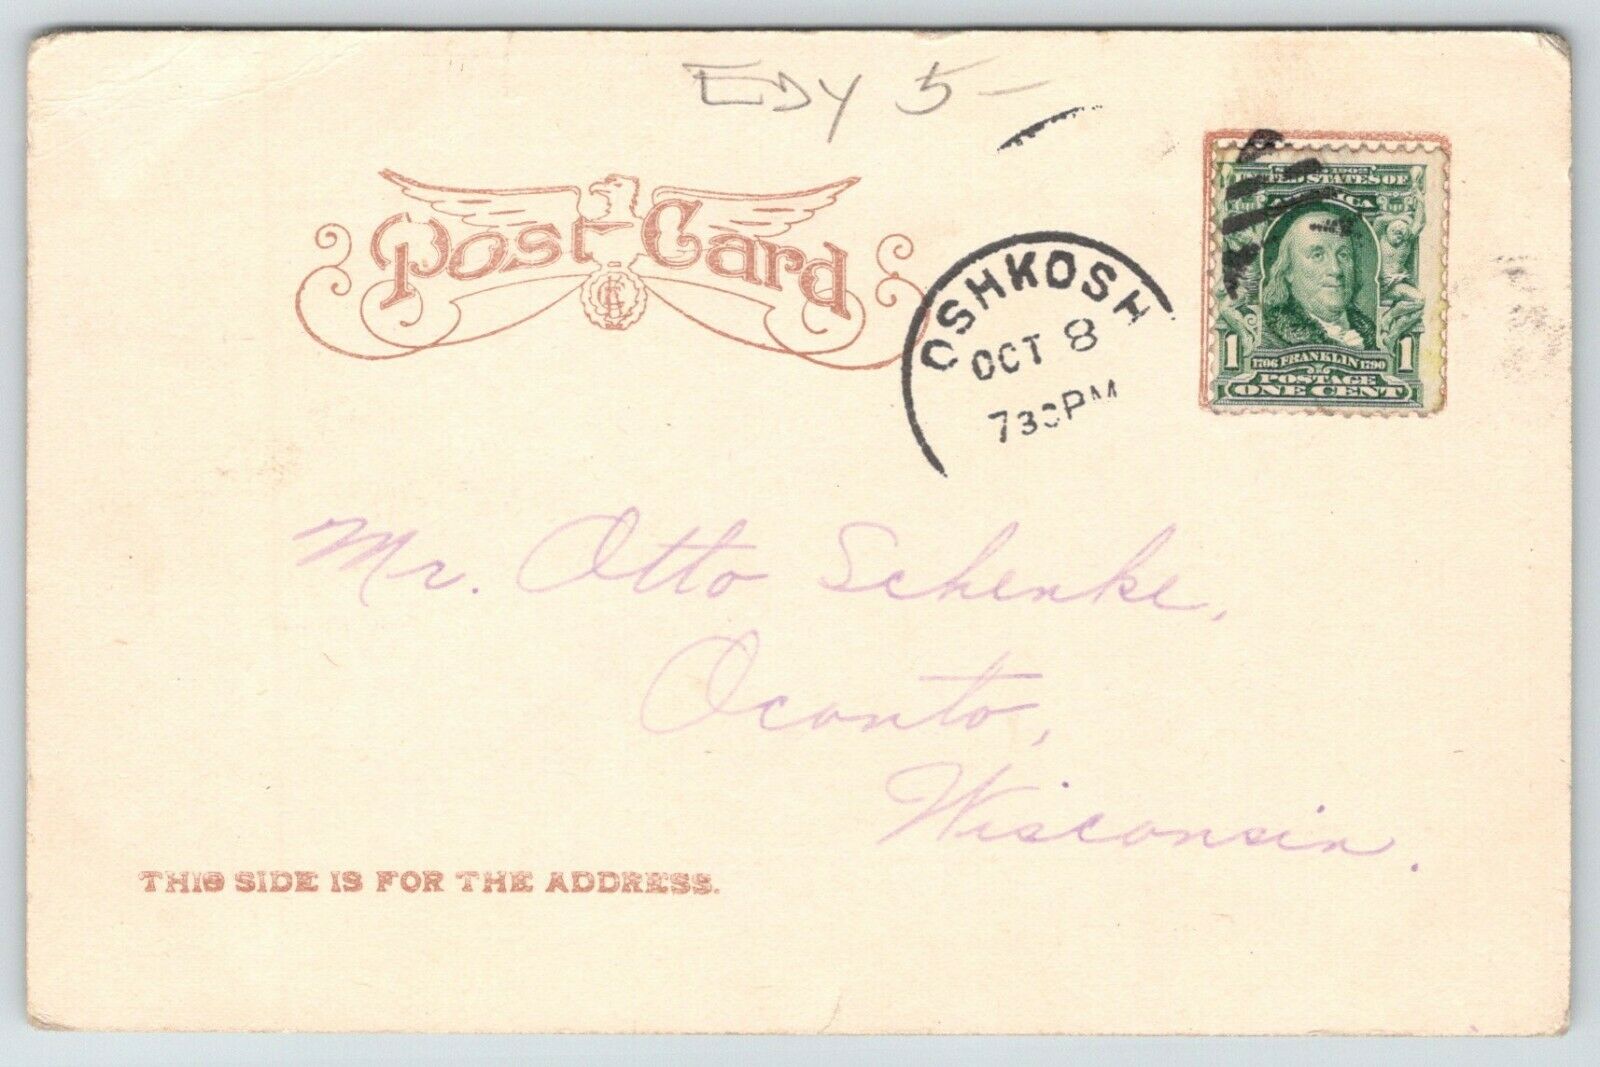 EDY 5-
Post Card
OSHKOSH
OCT 8
730PM
UNITED STATES OF
AMERICA
1 1706 FRANKLIN 1790 1
POSTAGE
ONE CENT
Mr. Otto Schenke,
Oconto,
Wisconsin.
THIS SIDE IS FOR THE ADDRESS.